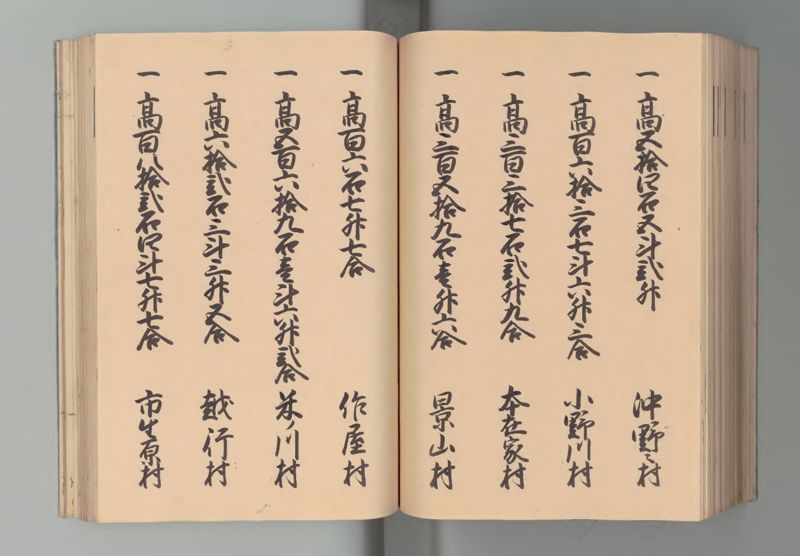 一 高五拾四石五斗弐升 沖野々村
一 高百六拾三石七斗六升三合 小野川村
一 高三百三拾七石弐升九合 本在家村
一 高三百五拾九石壱升六合 景山村
一 高百六石七升七合 作屋村
一 高五百六拾九石壱斗六升弐合 芥川村
一 高六拾弐石三斗三升五合 越行村
一 高百八拾弐石四斗七升七合 市生原村